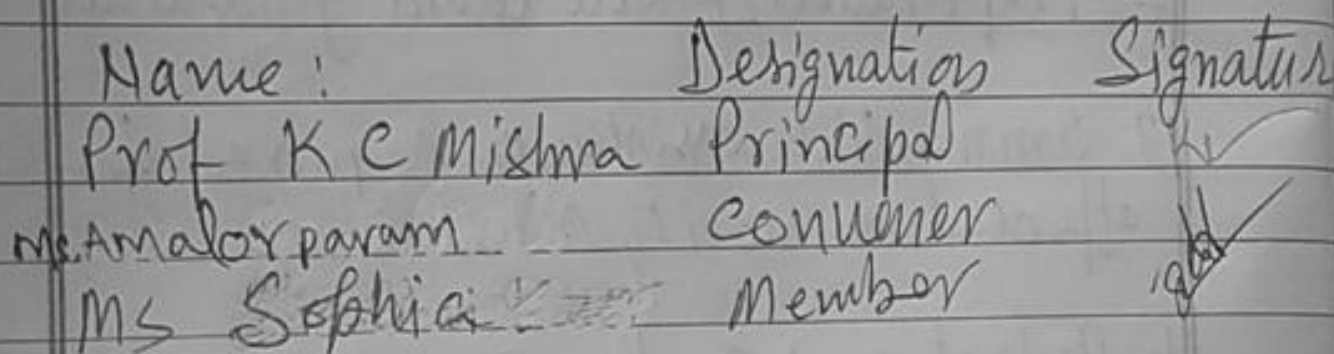 Name: Designation Signatur
Prof K C Mishra Principal
Ms. Amalorpavam Convener
Ms Sophia Member